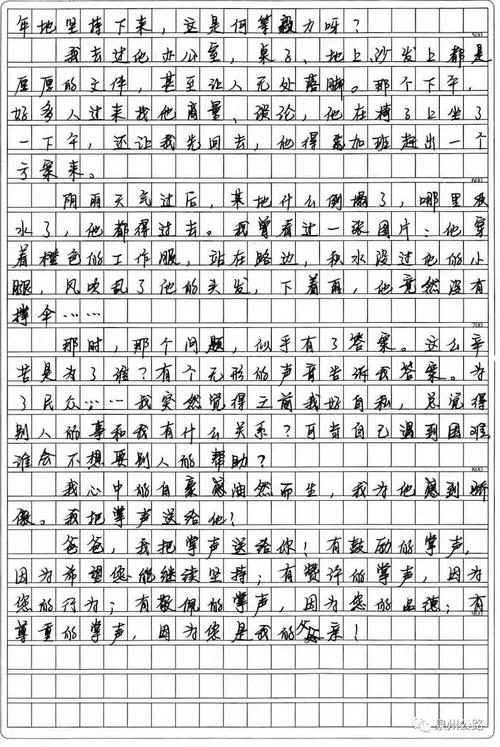 年地坚持下来，这是何等毅力呀？
我去过他办公室，桌子、地上沙发上都是
厚厚的文件，甚至让人无处落脚。那个下午，
好多人过来找他商量、谈论，他在椅子上坐了
一下午，还让我先回去，他得加班赶出一个
方案来。
阴雨天气过后，某地什么倒塌了，哪里积
水了，他都得过去。我曾看过一张图片：他穿
着橙色的工作服，站在路边，积水没过他的小
腿，风吹乱了他的头发，下着雨，他竟然没有
撑伞……
700
那时，那个问题，似乎有了答案。这么辛
苦是为了谁？有个无形的声音告诉我答案。为
了民众……我突然觉得之前我好自私，总觉得
别人的事和我有什么关系？可当自己遇到困难，
谁会不想要别人的帮助？
800
我心中的自豪感油然而生，我为他感到骄
傲。我把掌声送给他！
爸爸，我把掌声送给你！有鼓励的掌声，
因为希望您能继续坚持；有赞许的掌声，因为
您的行为；有敬佩的掌声，因为您的品德；有
尊重的掌声，因为您是我的父亲！
泉州公路